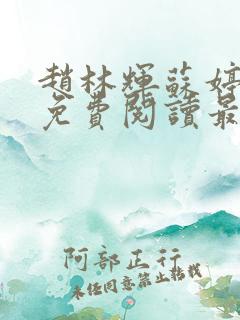 趙林輝蘇婷
免費閱讀最
阿部正行
未經同意禁止轉載